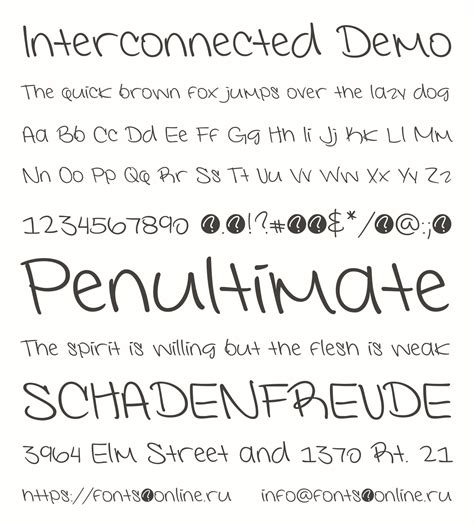 Interconnected Demo
The quick brown fox jumps over the lazy dog
Aa Bb Cc Dd Ee Ff Gg Hh Ii Jj Kk Ll Mm
Nn Oo Pp Qq Rr Ss Tt Uu Vv Ww Xx Yy Zz
1234567890 .!?#&*/@:;
Penultimate
The spirit is willing but the flesh is weak
SCHADENFREUDE
3964 Elm Street and 1370 Rt. 21
https://fonts online.ru info@fonts online.ru